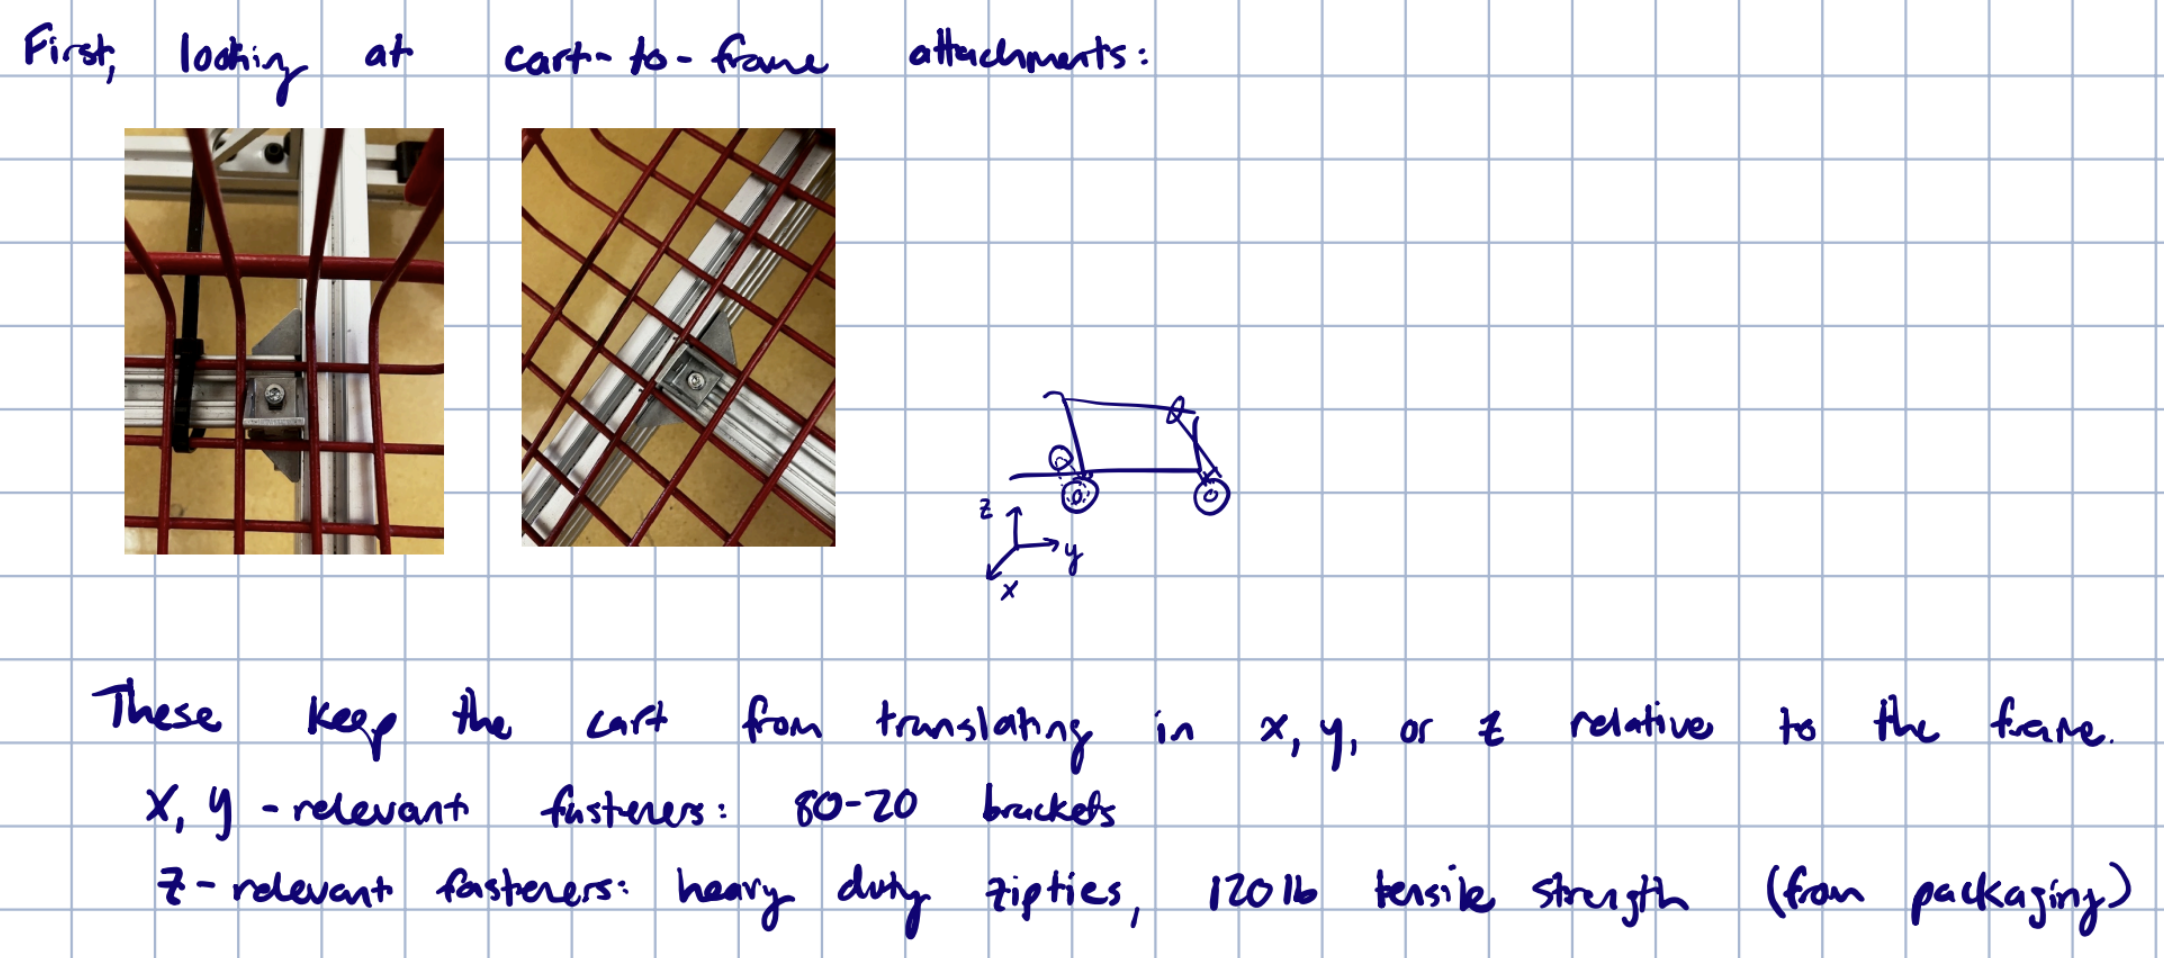 First, looking at cart-to-frame attachments:
z
y
x
These keep the cart from translating in x, y, or z relative to the frame.
x, y - relevant fasteners: 80-20 brackets
z - relevant fasteners: heavy duty zipties, 120 lb tensile strength (from packaging)